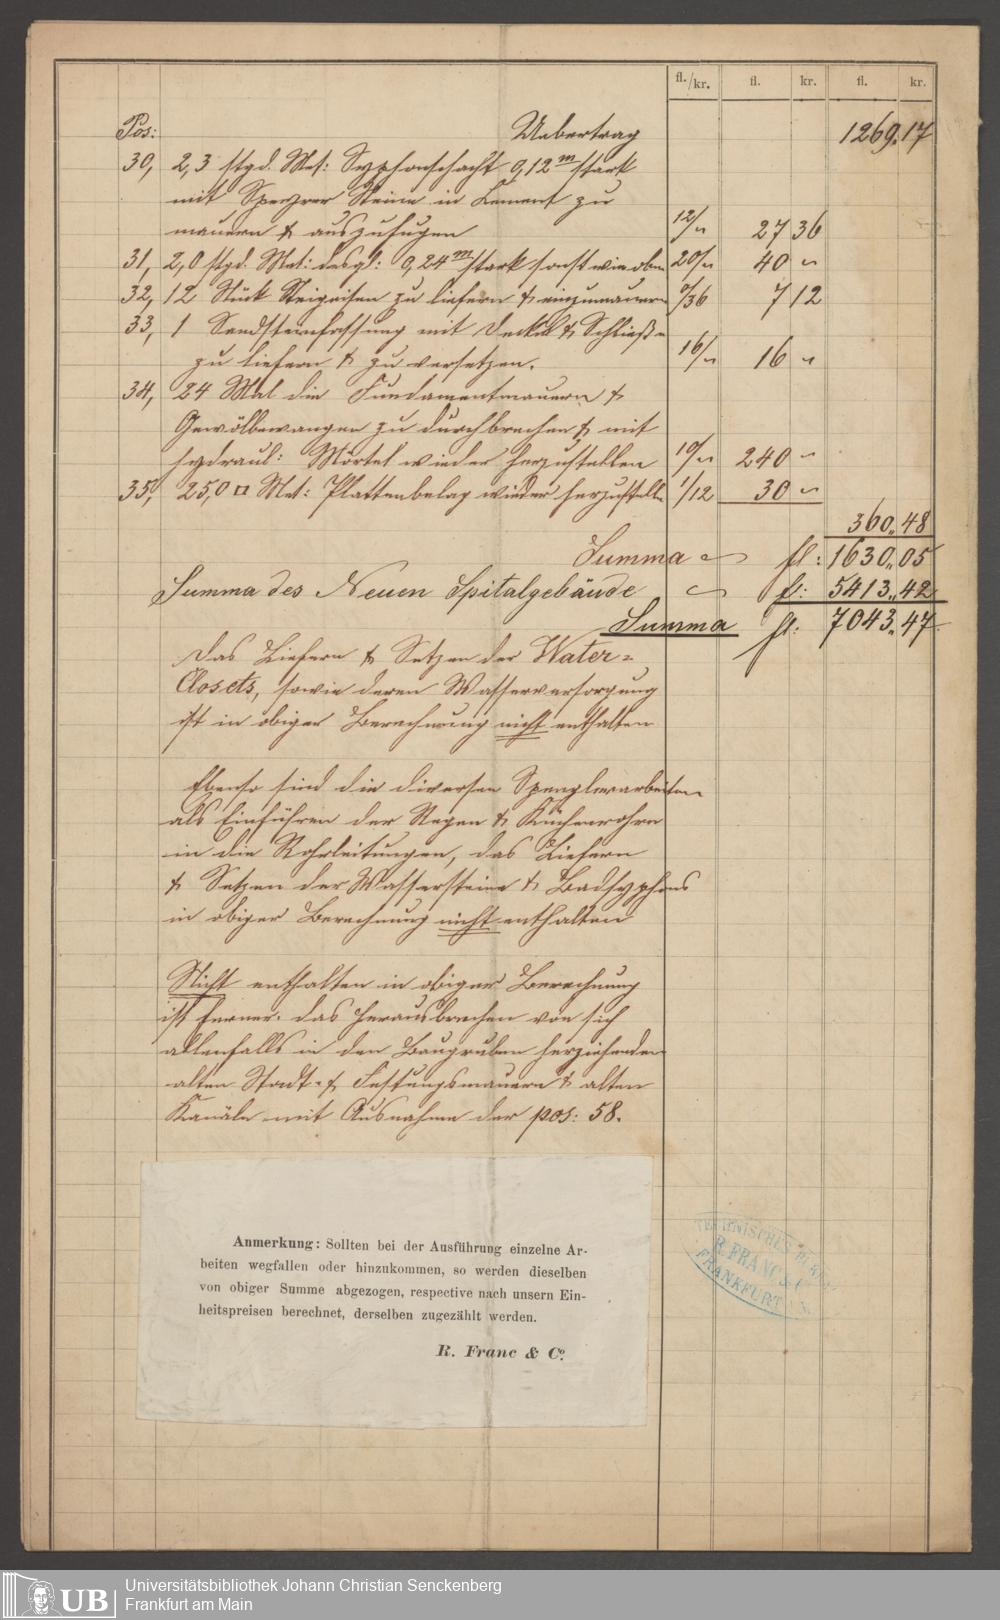 fl./kr. fl. kr. fl. kr.
Pos: Uebertrag 1269.17
30, 2,3 stgd. Met: Syphonschacht 0,12m stark
mit Speyrer Steine in Cement zu
mauern & auszufugen 12/" 27 36
31, 2,0 stgd. Met: desgl: 0,24m stark sonst wie oben 20/" 40 "
32, 12 Stück Steigeisen zu liefern & einzumauern 0/36 7 12
33, 1 Sandsteinfassung mit Deckel & Schließe
zu liefern & zu versetzen. 16/" 16 "
34, 24 Mal die Fundamentmauern &
Gewölbewangen zu durchbrechen & mit
hydraul: Mörtel wieder herzustellen 10/" 240 "
35, 25,0 □ Met: Plattenbelag wieder herzustell. 1/12 30 "
360„48
Summa fl: 1630„05
Summa des Neuen Spitalgebäude fl: 5413„42
Summa fl: 7043„47
Das Liefern & Setzen der Water=
Closets, sowie deren Wasserversorgung
ist in obiger Berechnung nicht enthalten
Ebenso sind die diversen Spenglerarbeiten
als Einführen der Regen & Küchenrohre
in die Rohrleitungen, das Liefern
& Setzen der Wassersteine & Badsyphons
in obiger Berechnung nicht enthalten
Nicht enthalten in obiger Berechnung
ist ferner. das Herausbrechen von sich
allenfalls in den Baugruben herziehenden
alten Stadt- & Festungsmauern & alten
Kanäle mit Ausnahme der pos: 58.
Anmerkung: Sollten bei der Ausführung einzelne Ar-
beiten wegfallen oder hinzukommen, so werden dieselben
von obiger Summe abgezogen, respective nach unsern Ein-
heitspreisen berechnet, derselben zugezählt werden.
R. Franc & Co.
TECHNISCHES
R. FRANC & C
FRANKFURT
UB
Universitätsbibliothek Johann Christian Senckenberg
Frankfurt am Main